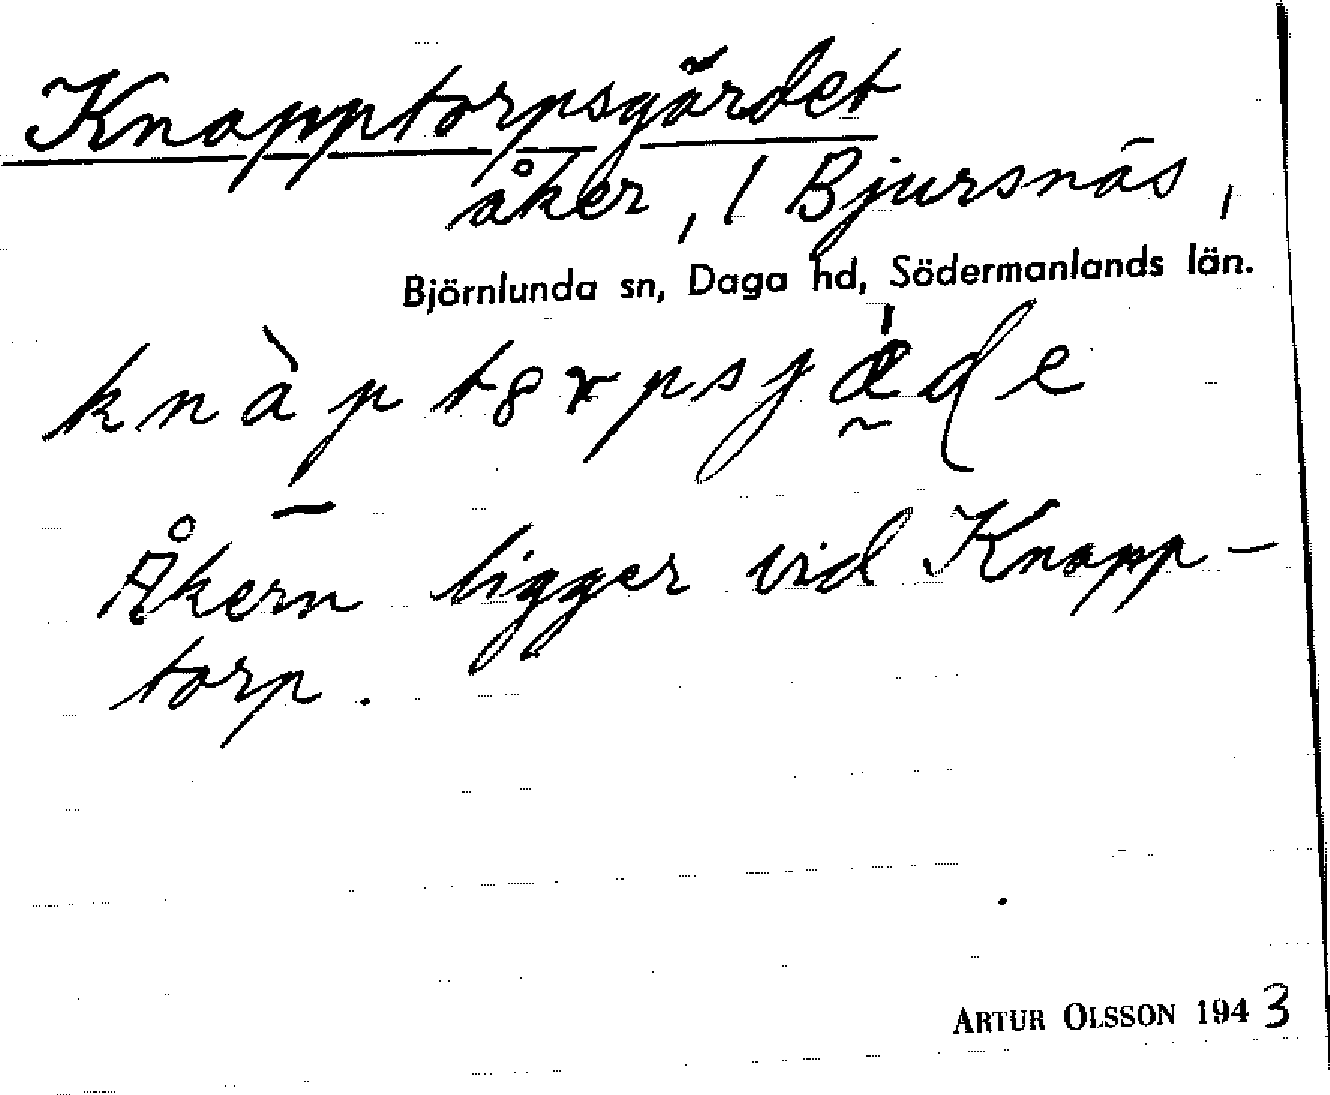 Knapptorpsgärdet
åker, 1 Bjursnäs,
Björnlunda sn, Daga hd, Södermanlands län.
knàptørpsjǽ̰de
Åkern ligger vid Knapp-
torp.
ARTUR OLSSON 1943